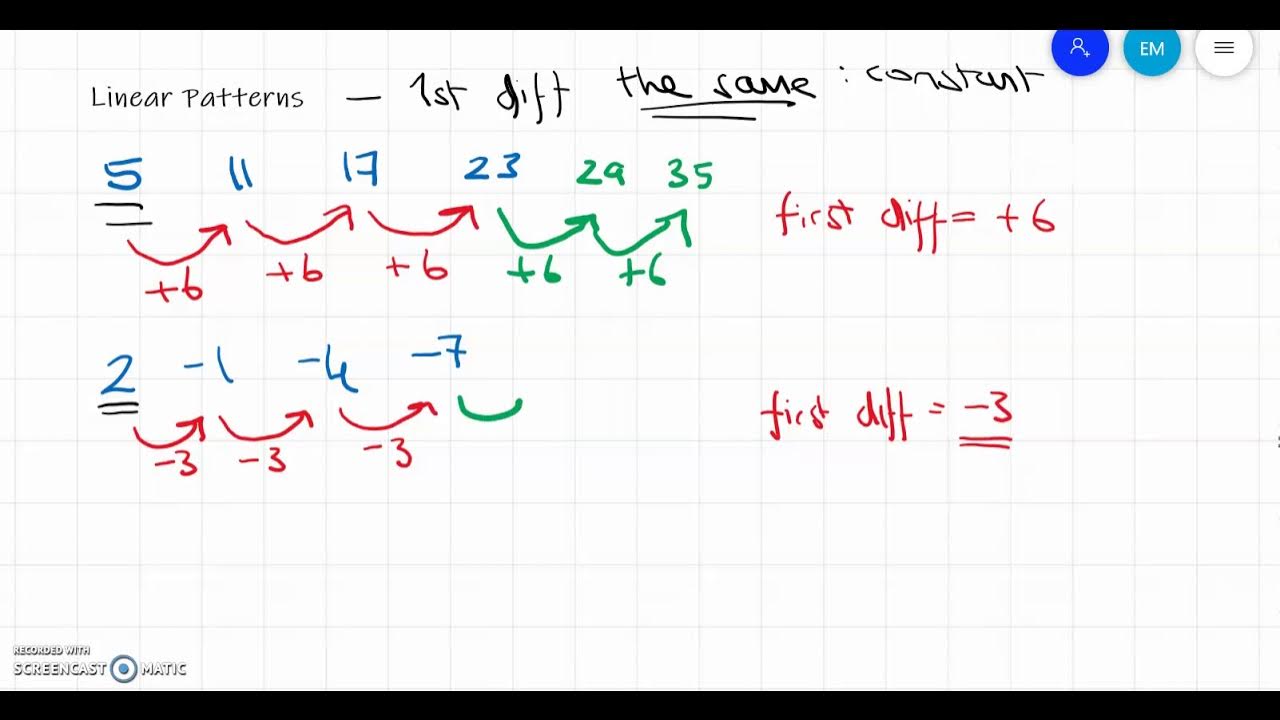 EM
Linear Patterns — 1st diff the same : constant
5 11 17 23 29 35
first diff = +6
+6 +6 +6 +6 +6
2 -1 -4 -7
first diff = -3
-3 -3 -3
RECORDED WITH
SCREENCAST MATIC